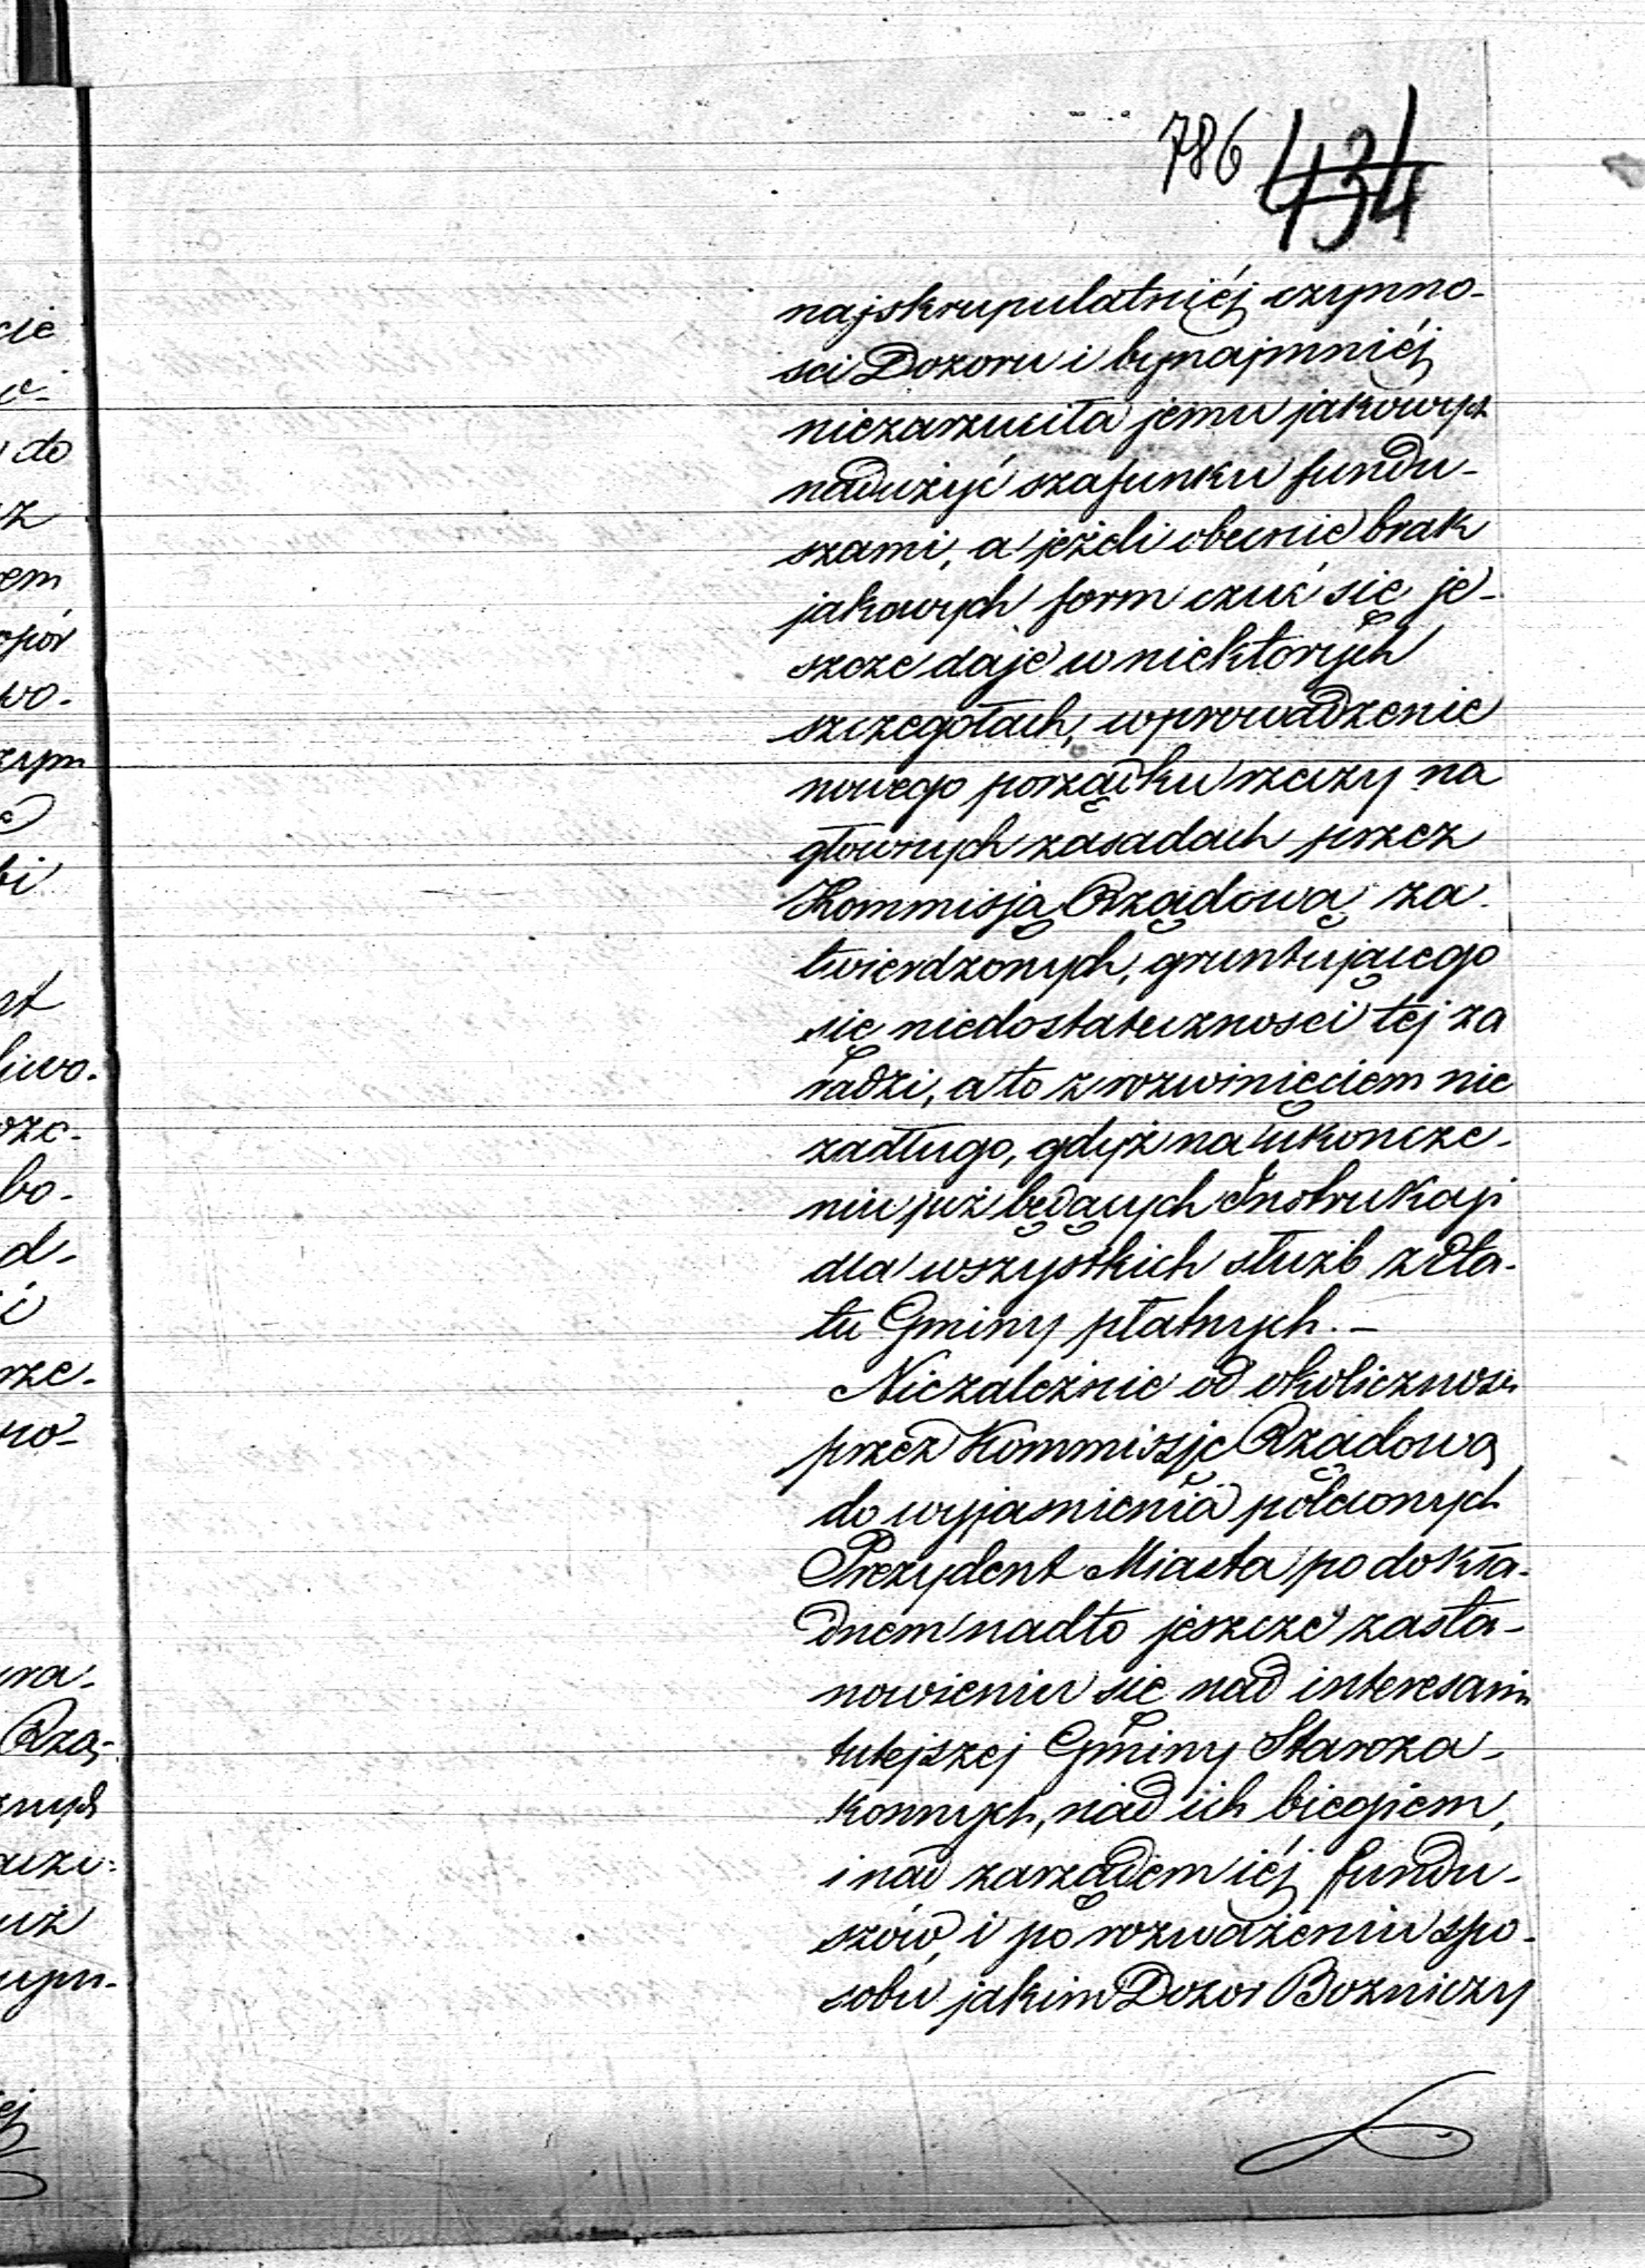 786 434
najskrupulatniéj czynno-
sci Dozoru i bynajmniéj
niezarzuciła jemu jakowych
nadużyć szafunku fundu-
szami, a jeżeli obecnie brak
jakowych form czuć się je-
szcze daje w niektorych
szczegołach, wprowadzenie
nowego porządku rzeczy na
głownych zasadach przez
Kommisją Rządową za-
twierdzonych, gruntującego
się niedostateczności tej za
radzi, a to z rozwinięciem nie
zadługo, gdyż na ukończe-
niu już będących Instrukcji
dla wszystkich służb z Eta-
tu Gminy płatnych. –
Niezależnie od okolicznosci
przez Kommissję Rządową
do wyjasnienia poleconych
Prezydent Miasta po dokła-
dnem nadto jeszcze zasta-
nowieniu się nad interesami
tutejszej Gminy Staroza-
konnych, nad ich biegiem,
i nad zarządem iéj fundu-
szów, i po rozważeniu spo-
sobu jakim Dozor Bozniczy
cie
do
z
em
wo.
zym
bi
bo.
d-
rze-
no-
Rzą-
uż